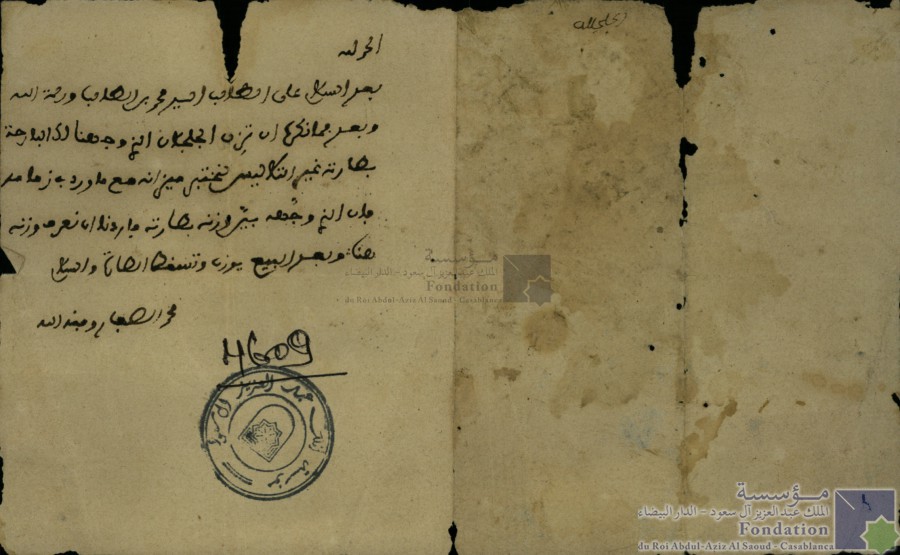 الحمد لله
بعد السلام على الطالب السيد محمد بن الطالب ورحمة الله
وبعد فمانكرها ان تزن الجلجلان الذي وجهنا لك البارحة
بطارته غير التكاليس نختبر ميزانه مع ما ورد بزمامه
فان الذي وجهه بين وزنه بطارته فاردنا ان نعرف وزنه
هنا وبعد البيع يوزن وتسقط الطارة والسلام
محمد الصفار وفقه الله
4609
مؤسسة الملك عبد العزيز آل سعود
مؤسسة
الملك عبد العزيز آل سعود - الدار البيضاء
Fondation
du Roi Abdul-Aziz Al Saoud - Casablanca
مؤسسة
الملك عبد العزيز آل سعود - الدار البيضاء
Fondation
du Roi Abdul-Aziz Al Saoud - Casablanca